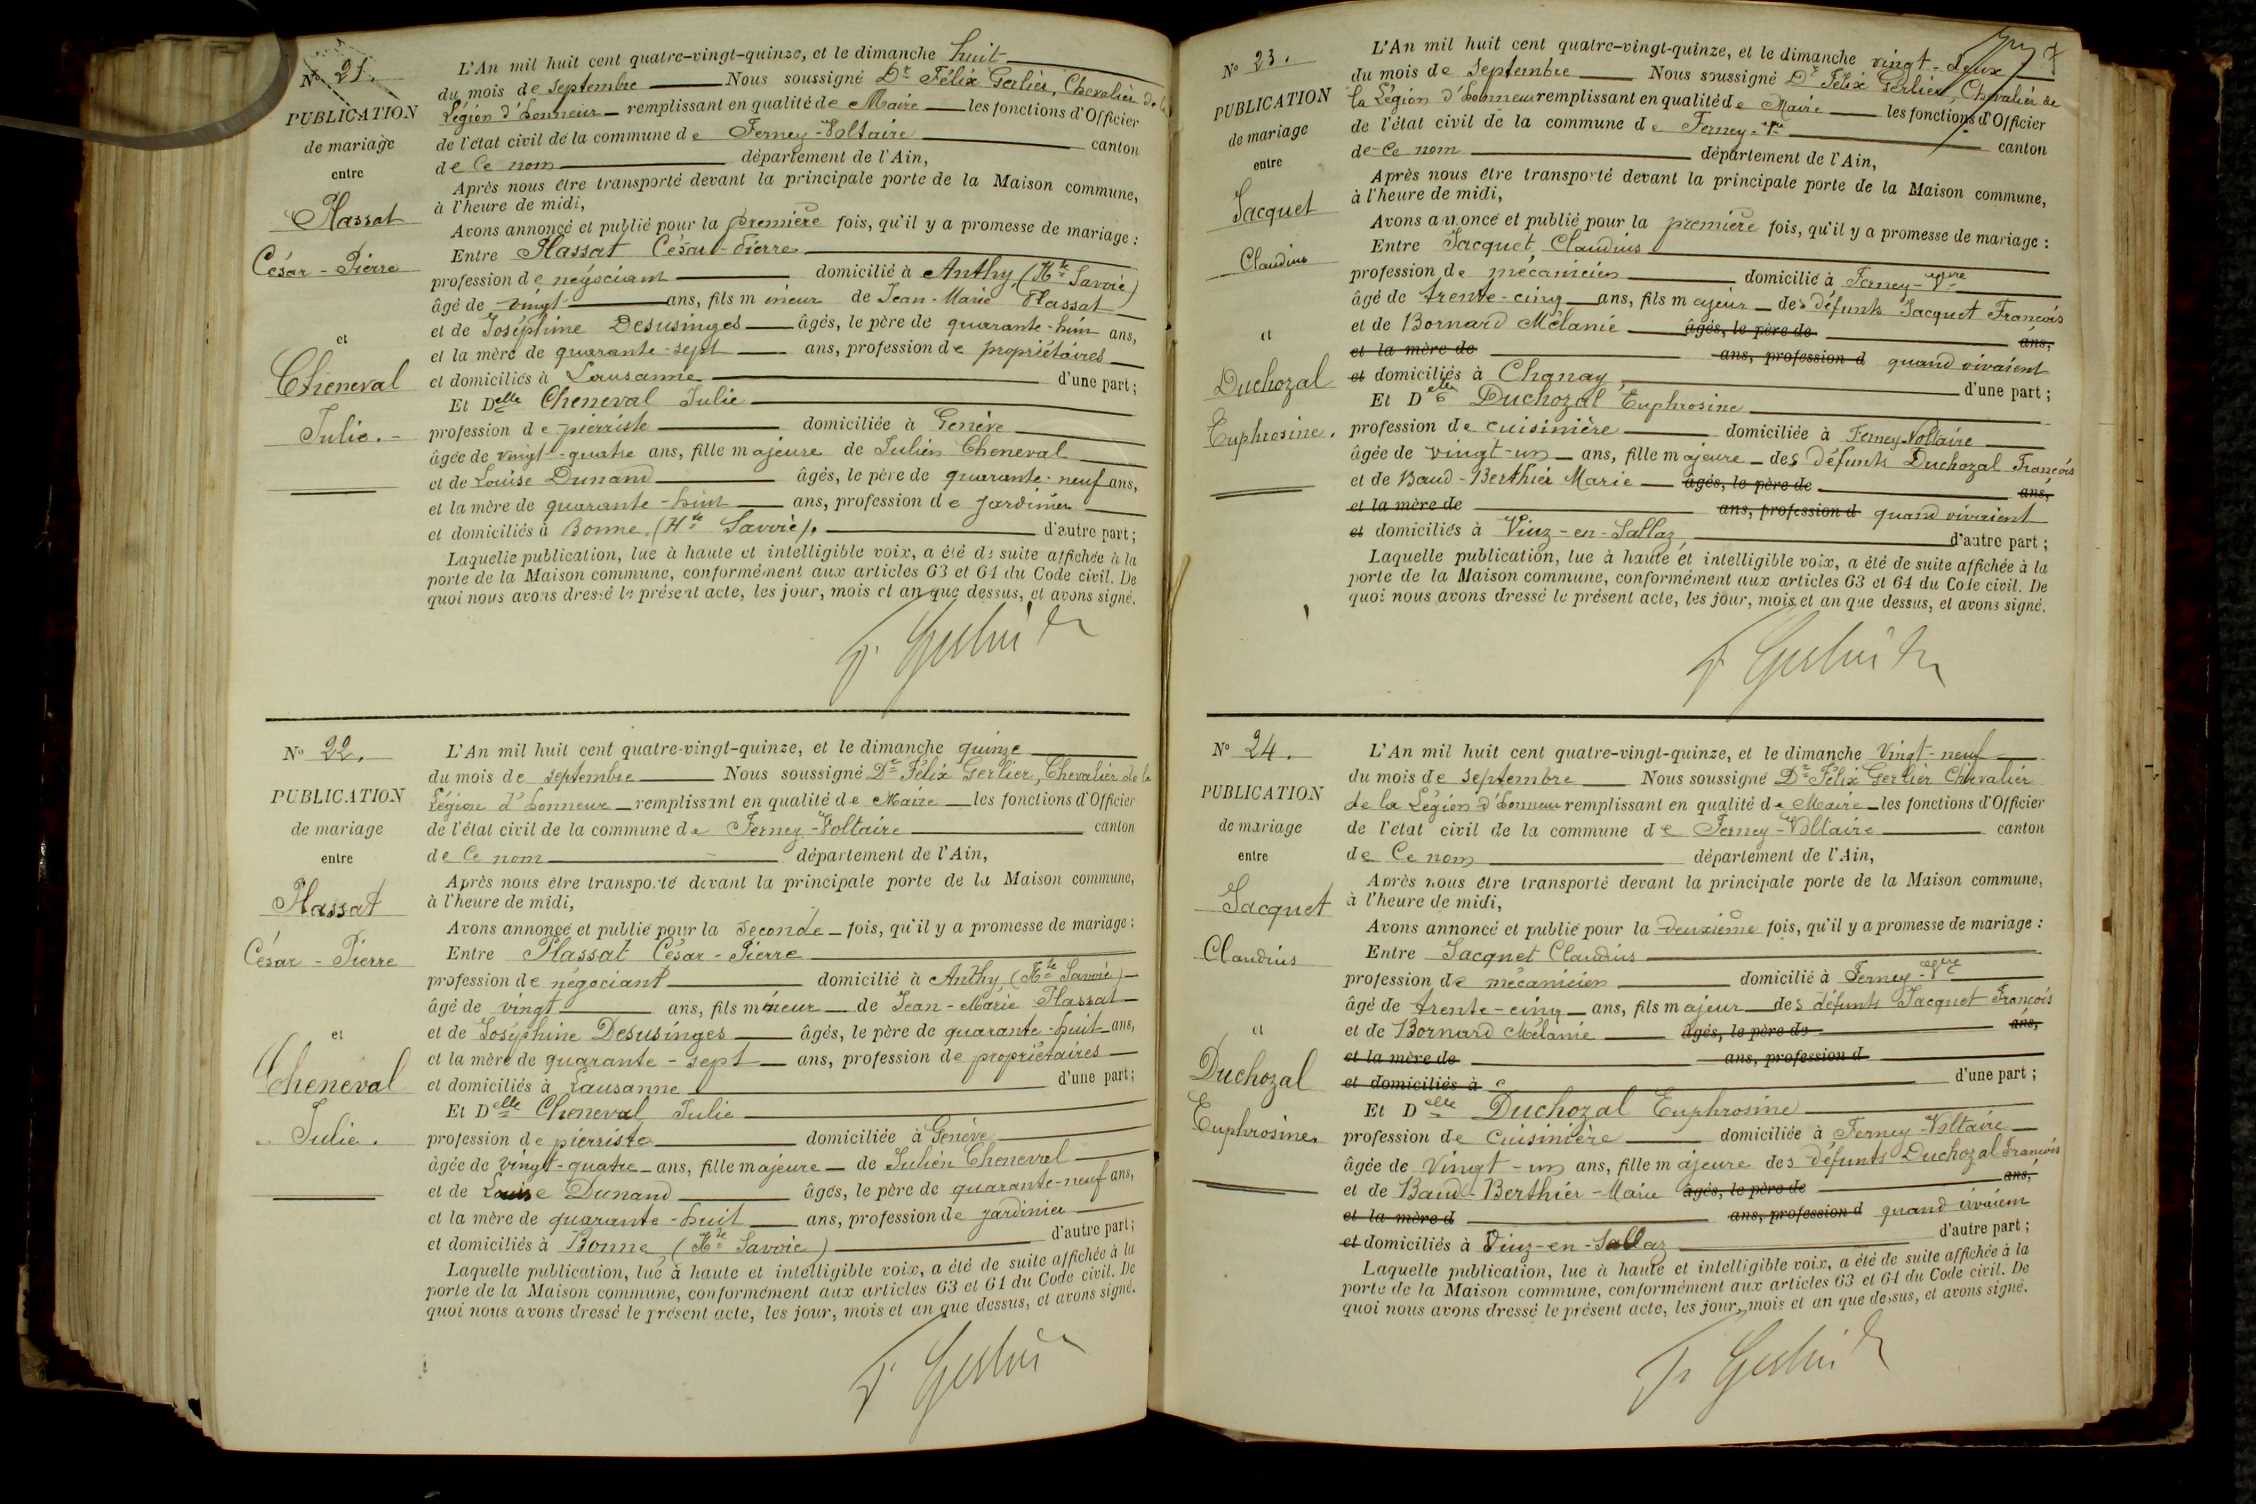 N° 21.
PUBLICATION
de mariage
entre
Plassat
César - Pierre
et
Cheneval
Julie. -
L'An mil huit cent quatre-vingt-quinze, et le dimanche huit
du mois de septembre Nous soussigné Dr Félix Gerlier, Chevalier de la
Légion d'honneur remplissant en qualité de Maire les fonctions d'Officier
de l'état civil de la commune de Ferney-Voltaire canton
de Ce nom département de l'Ain,
Après nous être transporté devant la principale porte de la Maison commune,
à l'heure de midi,
Avons annoncé et publié pour la première fois, qu'il y a promesse de mariage :
Entre Plassat César-Pierre
profession de négociant domicilié à Anthy (Hte Savoie)
âgé de vingt ans, fils mineur de Jean-Marie Plassat
et de Joséphine Desusinges âgés, le père de quarante-huit ans,
et la mère de quarante-sept ans, profession de propriétaires
et domiciliés à Lausanne d'une part ;
Et Delle Cheneval Julie
profession de pierriste domiciliée à Genève
âgée de vingt-quatre ans, fille majeure de Julien Cheneval
et de Louise Dunand âgés, le père de quarante-neuf ans,
et la mère de quarante-huit ans, profession de jardinier
et domiciliés à Bonne. (Hte Savoie). d'autre part ;
Laquelle publication, lue à haute et intelligible voix, a été de suite affichée à la
porte de la Maison commune, conformément aux articles 63 et 64 du Code civil. De
quoi nous avons dressé le présent acte, les jour, mois et an que dessus, et avons signé.
F. Gerlier Dr
N° 22.
PUBLICATION
de mariage
entre
Plassat
César - Pierre
et
Cheneval
Julie.
L'An mil huit cent quatre-vingt-quinze, et le dimanche quinze
du mois de septembre Nous soussigné Dr Félix Gerlier, Chevalier de la
Légion d'honneur remplissant en qualité de Maire les fonctions d'Officier
de l'état civil de la commune de Ferney-Voltaire canton
de Ce nom département de l'Ain,
Après nous être transporté devant la principale porte de la Maison commune,
à l'heure de midi,
Avons annoncé et publié pour la seconde fois, qu'il y a promesse de mariage :
Entre Plassat César-Pierre
profession de négociant domicilié à Anthy (Hte Savoie)
âgé de vingt ans, fils mineur de Jean-Marie Plassat
et de Joséphine Desusinges âgés, le père de quarante-huit ans,
et la mère de quarante-sept ans, profession de propriétaires
et domiciliés à Lausanne d'une part ;
Et Delle Cheneval Julie
profession de pierriste domiciliée à Genève
âgée de vingt-quatre ans, fille majeure de Julien Cheneval
et de Louise Dunand âgés, le père de quarante-neuf ans,
et la mère de quarante-huit ans, profession de jardinier
et domiciliés à Bonne (Hte Savoie) d'autre part ;
Laquelle publication, lue à haute et intelligible voix, a été de suite affichée à la
porte de la Maison commune, conformément aux articles 63 et 64 du Code civil. De
quoi nous avons dressé le présent acte, les jour, mois et an que dessus, et avons signé.
F. Gerlier
N° 23.
PUBLICATION
de mariage
entre
Jacquet
Claudius
et
Duchozal
Euphrosine.
L'An mil huit cent quatre-vingt-quinze, et le dimanche vingt-deux
du mois de septembre Nous soussigné Dr Félix Gerlier, Chevalier de
la Légion d'honneur remplissant en qualité de Maire les fonctions d'Officier
de l'état civil de la commune de Ferney-Vre canton
de Ce nom département de l'Ain,
Après nous être transporté devant la principale porte de la Maison commune,
à l'heure de midi,
Avons annoncé et publié pour la première fois, qu'il y a promesse de mariage :
Entre Jacquet Claudius
profession de mécanicien domicilié à Ferney-Vre
âgé de trente-cinq ans, fils majeur des défunts Jacquet François
et de Bornard Mélanie âgés, le père de ans,
et la mère de ans, profession d quand vivaient
et domiciliés à Chanay d'une part ;
Et Delle Duchozal Euphrosine
profession de cuisinière domiciliée à Ferney-Voltaire
âgée de vingt-un ans, fille majeure des défunts Duchozal François
et de Baud-Berthier Marie âgés, le père de ans,
et la mère de ans, profession d quand vivaient
et domiciliés à Viuz-en-Sallaz, d'autre part ;
Laquelle publication, lue à haute et intelligible voix, a été de suite affichée à la
porte de la Maison commune, conformément aux articles 63 et 64 du Code civil. De
quoi nous avons dressé le présent acte, les jour, mois et an que dessus, et avons signé.
F. Gerlier Dr
N° 24.
PUBLICATION
de mariage
entre
Jacquet
Claudius
et
Duchozal
Euphrosine.
L'An mil huit cent quatre-vingt-quinze, et le dimanche vingt-neuf
du mois de septembre Nous soussigné Dr Félix Gerlier Chevalier
de la Légion d'honneur remplissant en qualité de Maire les fonctions d'Officier
de l'état civil de la commune de Ferney-Voltaire canton
de Ce nom département de l'Ain,
Après nous être transporté devant la principale porte de la Maison commune,
à l'heure de midi,
Avons annoncé et publié pour la deuxième fois, qu'il y a promesse de mariage :
Entre Jacquet Claudius
profession de mécanicien domicilié à Ferney-Vre
âgé de trente-cinq ans, fils majeur des défunts Jacquet François
et de Bornard Mélanie âgés, le père de ans,
et la mère de ans, profession d
et domiciliés à d'une part ;
Et Delle Duchozal Euphrosine
profession de cuisinière domiciliée à Ferney-Voltaire
âgée de vingt-un ans, fille majeure des défunts Duchozal François
et de Baud-Berthier-Marie âgés, le père de ans,
et la mère d ans, profession d quand vivaient
et domiciliés à Viuz-en-Sallaz d'autre part ;
Laquelle publication, lue à haute et intelligible voix, a été de suite affichée à la
porte de la Maison commune, conformément aux articles 63 et 64 du Code civil. De
quoi nous avons dressé le présent acte, les jour, mois et an que dessus, et avons signé.
F. Gerlier Dr